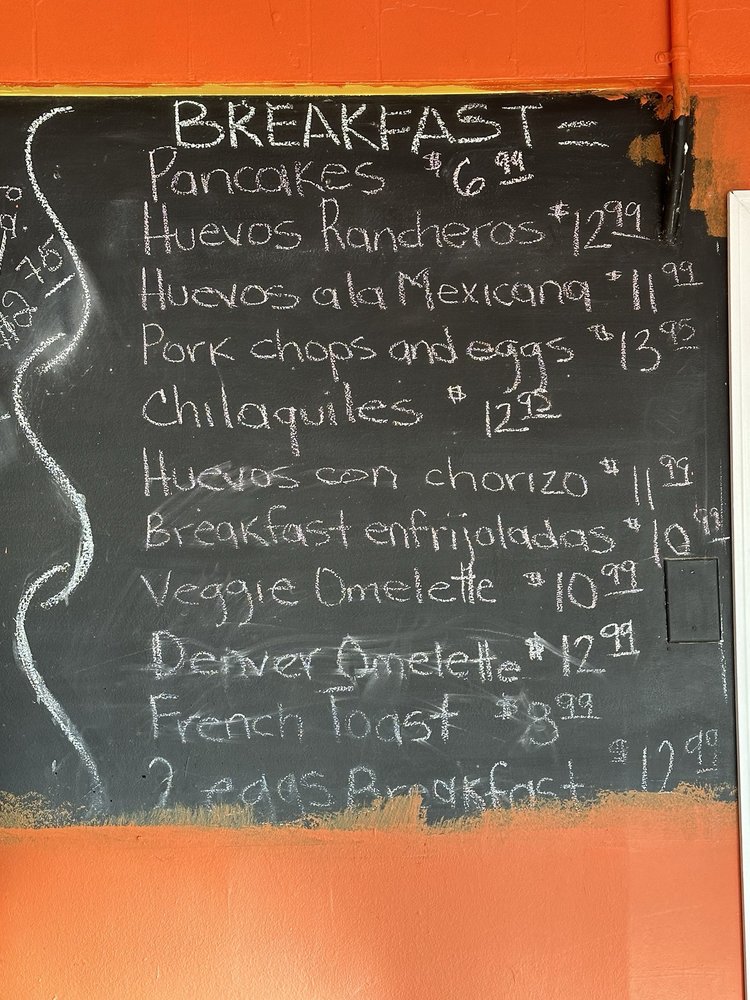 BREAKFAST =
Pancakes $6.99
Huevos Rancheros $12.99
Huevos a la Mexicana $11.99
Pork chops and eggs $13.95
Chilaquiles $12.95
Huevos con chorizo $11.99
Breakfast enfrijoladas $10.99
Veggie Omelette $10.99
Denver Omelette $12.99
French Toast $8.99
2 eggs Breakfast $12.99